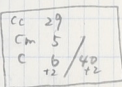 Cc 29
Cm 5
C 6 / 40
+2 +2